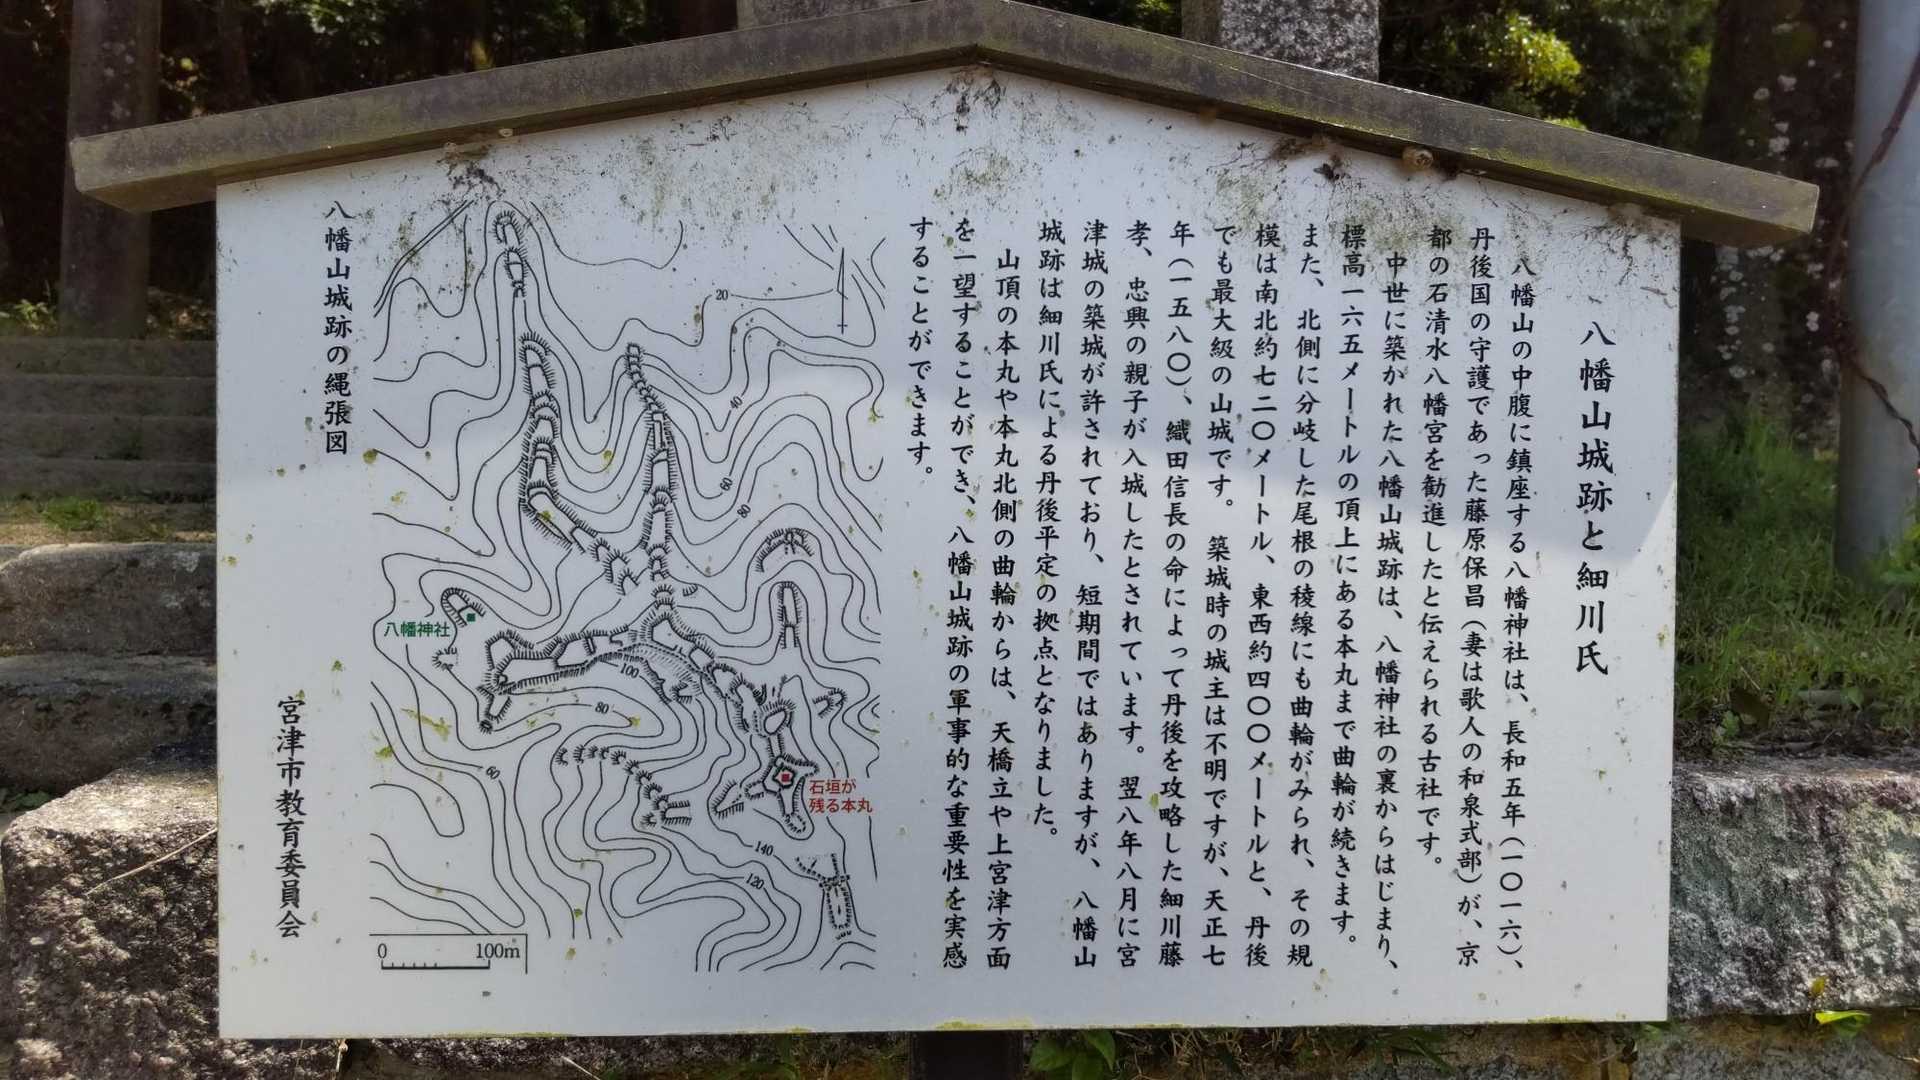 八幡山城跡と細川氏
八幡山の中腹に鎮座する八幡神社は、長和五年（一〇一六）、
丹後国の守護であった藤原保昌（妻は歌人の和泉式部）が、京
都の石清水八幡宮を勧進したと伝えられる古社です。
中世に築かれた八幡山城跡は、八幡神社の裏からはじまり、
標高一六五メートルの頂上にある本丸まで曲輪が続きます。
また、北側に分岐した尾根の稜線にも曲輪がみられ、その規
模は南北約七二〇メートル、東西約四〇〇メートルと、丹後
でも最大級の山城です。　築城時の城主は不明ですが、天正七
年（一五八〇）、織田信長の命によって丹後を攻略した細川藤
孝、忠興の親子が入城したとされています。翌八年八月に宮
津城の築城が許されており、短期間ではありますが、八幡山
城跡は細川氏による丹後平定の拠点となりました。
山頂の本丸や本丸北側の曲輪からは、天橋立や上宮津方面
を一望することができ、八幡山城跡の軍事的な重要性を実感
することができます。
八幡山城跡の縄張図
20
40
60
80
八幡神社
100
80
60
石垣が
残る本丸
140
120
0 100m
宮津市教育委員会